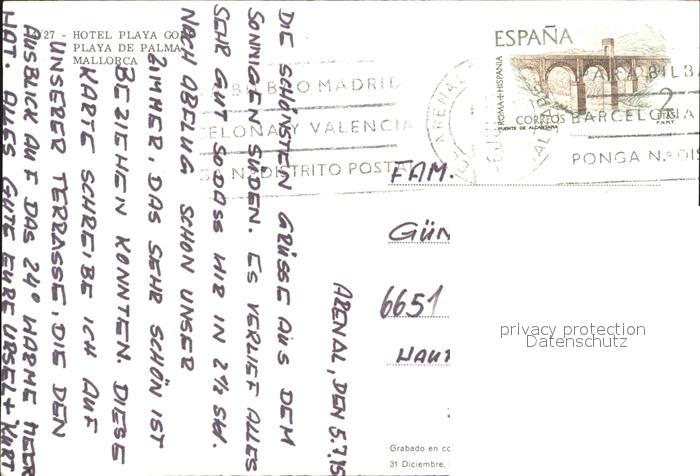 27 - HOTEL PLAYA GOLF
PLAYA DE PALMA
MALLORCA
ESPAÑA
ROMA+HISPANIA
CORREOS
2
PTAS
F.N.M.T.
PUENTE DE ALCANTARA
BILBAO MADRID
CELONA Y VALENCIA
DISTRITO POSTAL
BILBA
BARCELONA
PONGA N.º DIS
ARENAL
ARENAL, DEN 5.7.
DIE SCHÖNSTEN GRÜSSE AUS DEM
SONNIGEN SÜDEN. ES VERLIEF ALLES
SEHR GUT SODASS WIR IN 2½ STD.
NACH ABFLUG SCHON UNSER
ZIMMER, DAS SEHR SCHÖN IST
BEZIEHEN KONNTEN. DIESE
KARTE SCHREIBE ICH AUF
UNSERER TERRASSE, DIE DEN
AUSBLICK AUF DAS 24° WARME MEER
HAT. ALLES GUTE EURE URSEL + KURT
FAM.
GÜN
6651
HAUP
privacy protection
Datenschutz
Grabado en co
31 Diciembre,